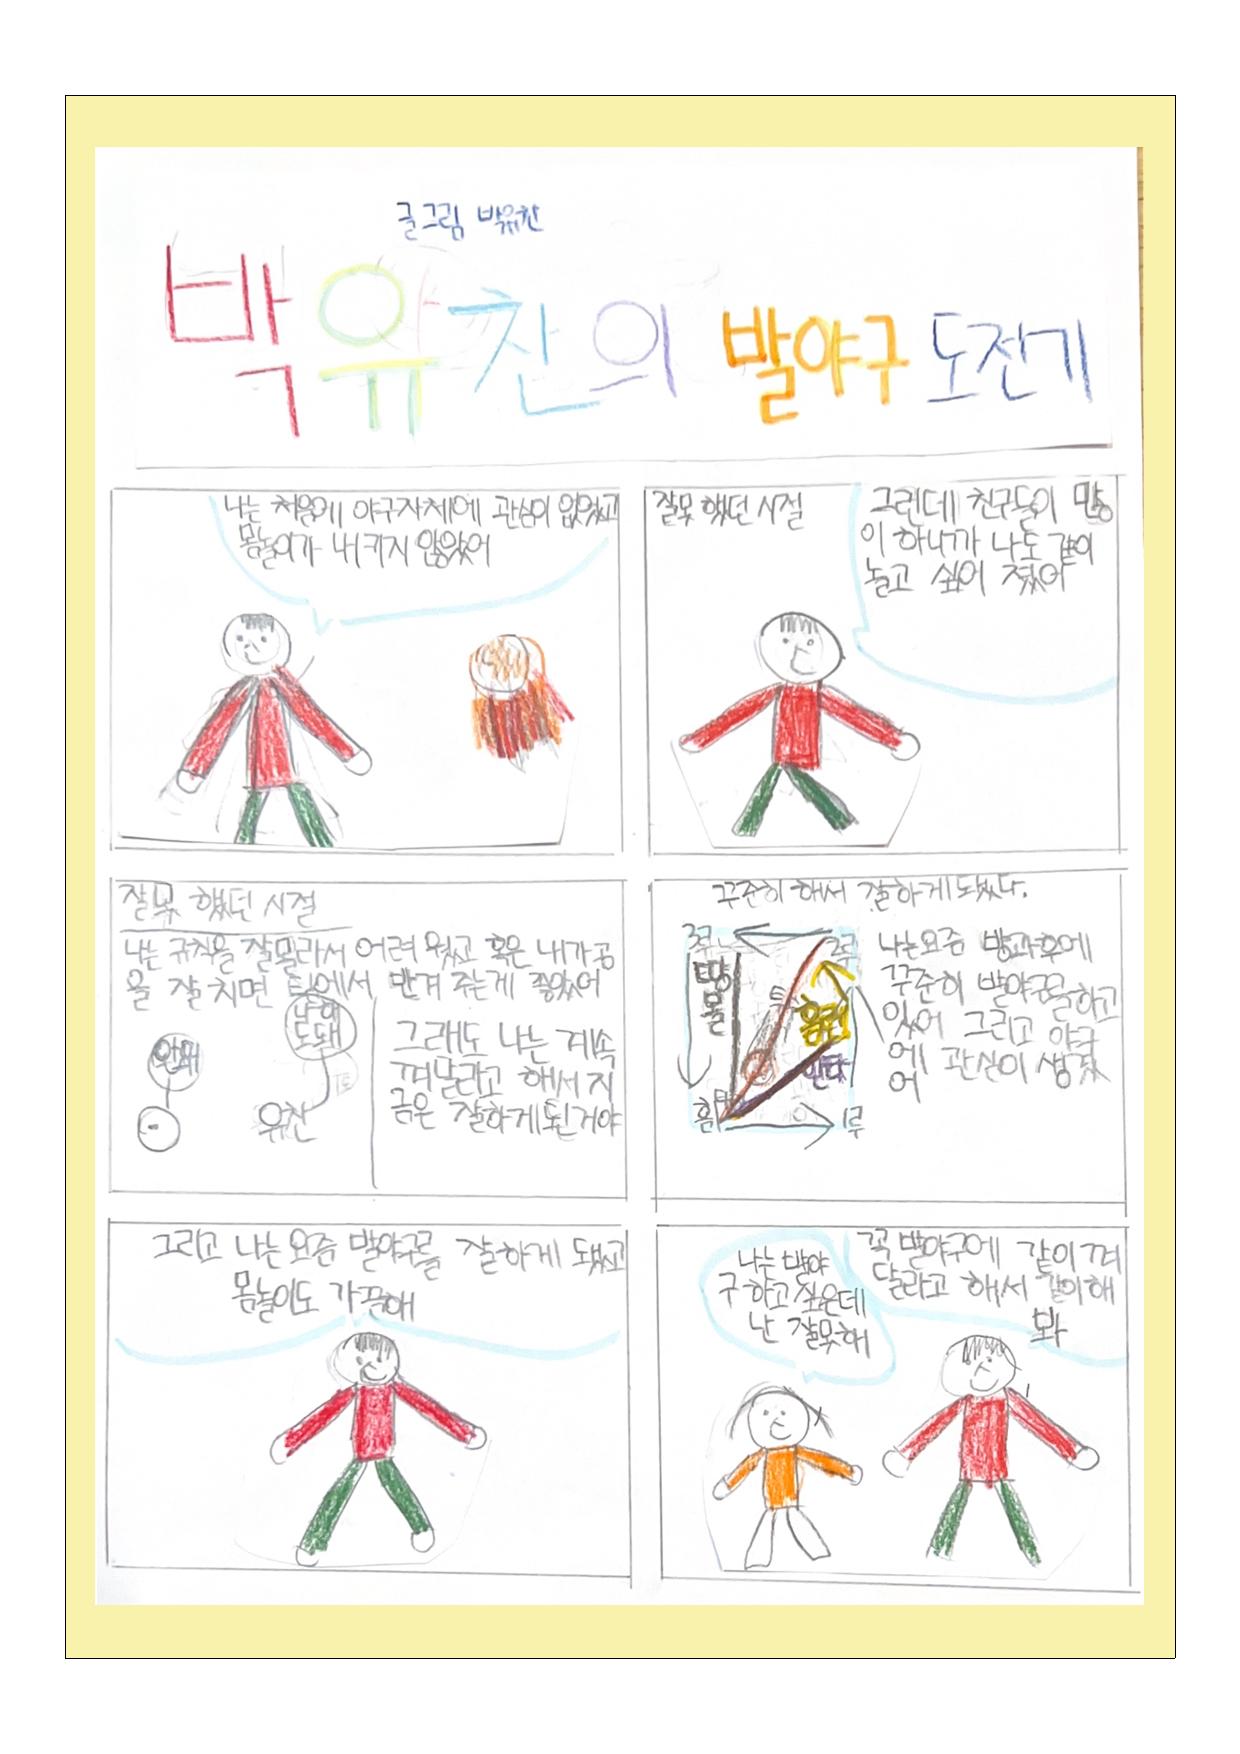 글그림 박유찬
박유찬의 발야구 도전기
나는 처음에 야구자체에 관심이 없었고
몸놀이가 내키지 않았어
잘못 했던 시절
그런데 친구들이 많
이 하니까 나도 같이
놀고 싶어 졌어
잘못 했던 시절
나는 규칙을 잘몰라서 어려 웠고 혹은 내가 공
을 잘 치면 팀에서 반겨 주는게 좋았어
안돼
나 해
도 돼
유찬
그래도 나는 계속
껴달라고 해서 지
금은 잘하게된거야
꾸준히 해서 잘하게되었다.
3루
2루
땅볼
홈런
안타
홈
1루
나는요즘 방과후에
꾸준히 발야구를하고
있어 그리고 야구
에 관심이 생겼
어
그리고 나는 요즘 발야구를 잘하게 됐고
몸놀이도 가끔해
나는 발야
구 하고 싶은데
난 잘못해
꼭 발야구에 같이 껴
달라고 해서 같이해
봐